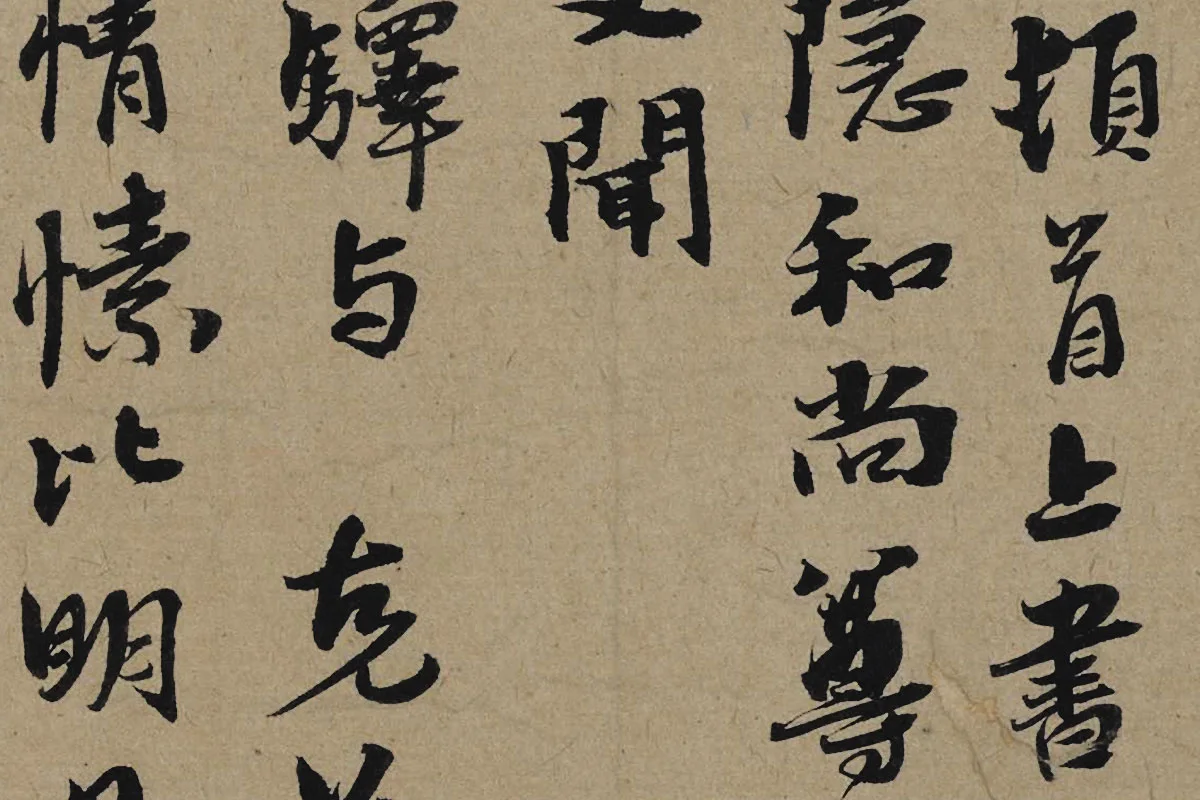 頓首上書
隐和尚尊
聞
驛与克
情愫比明